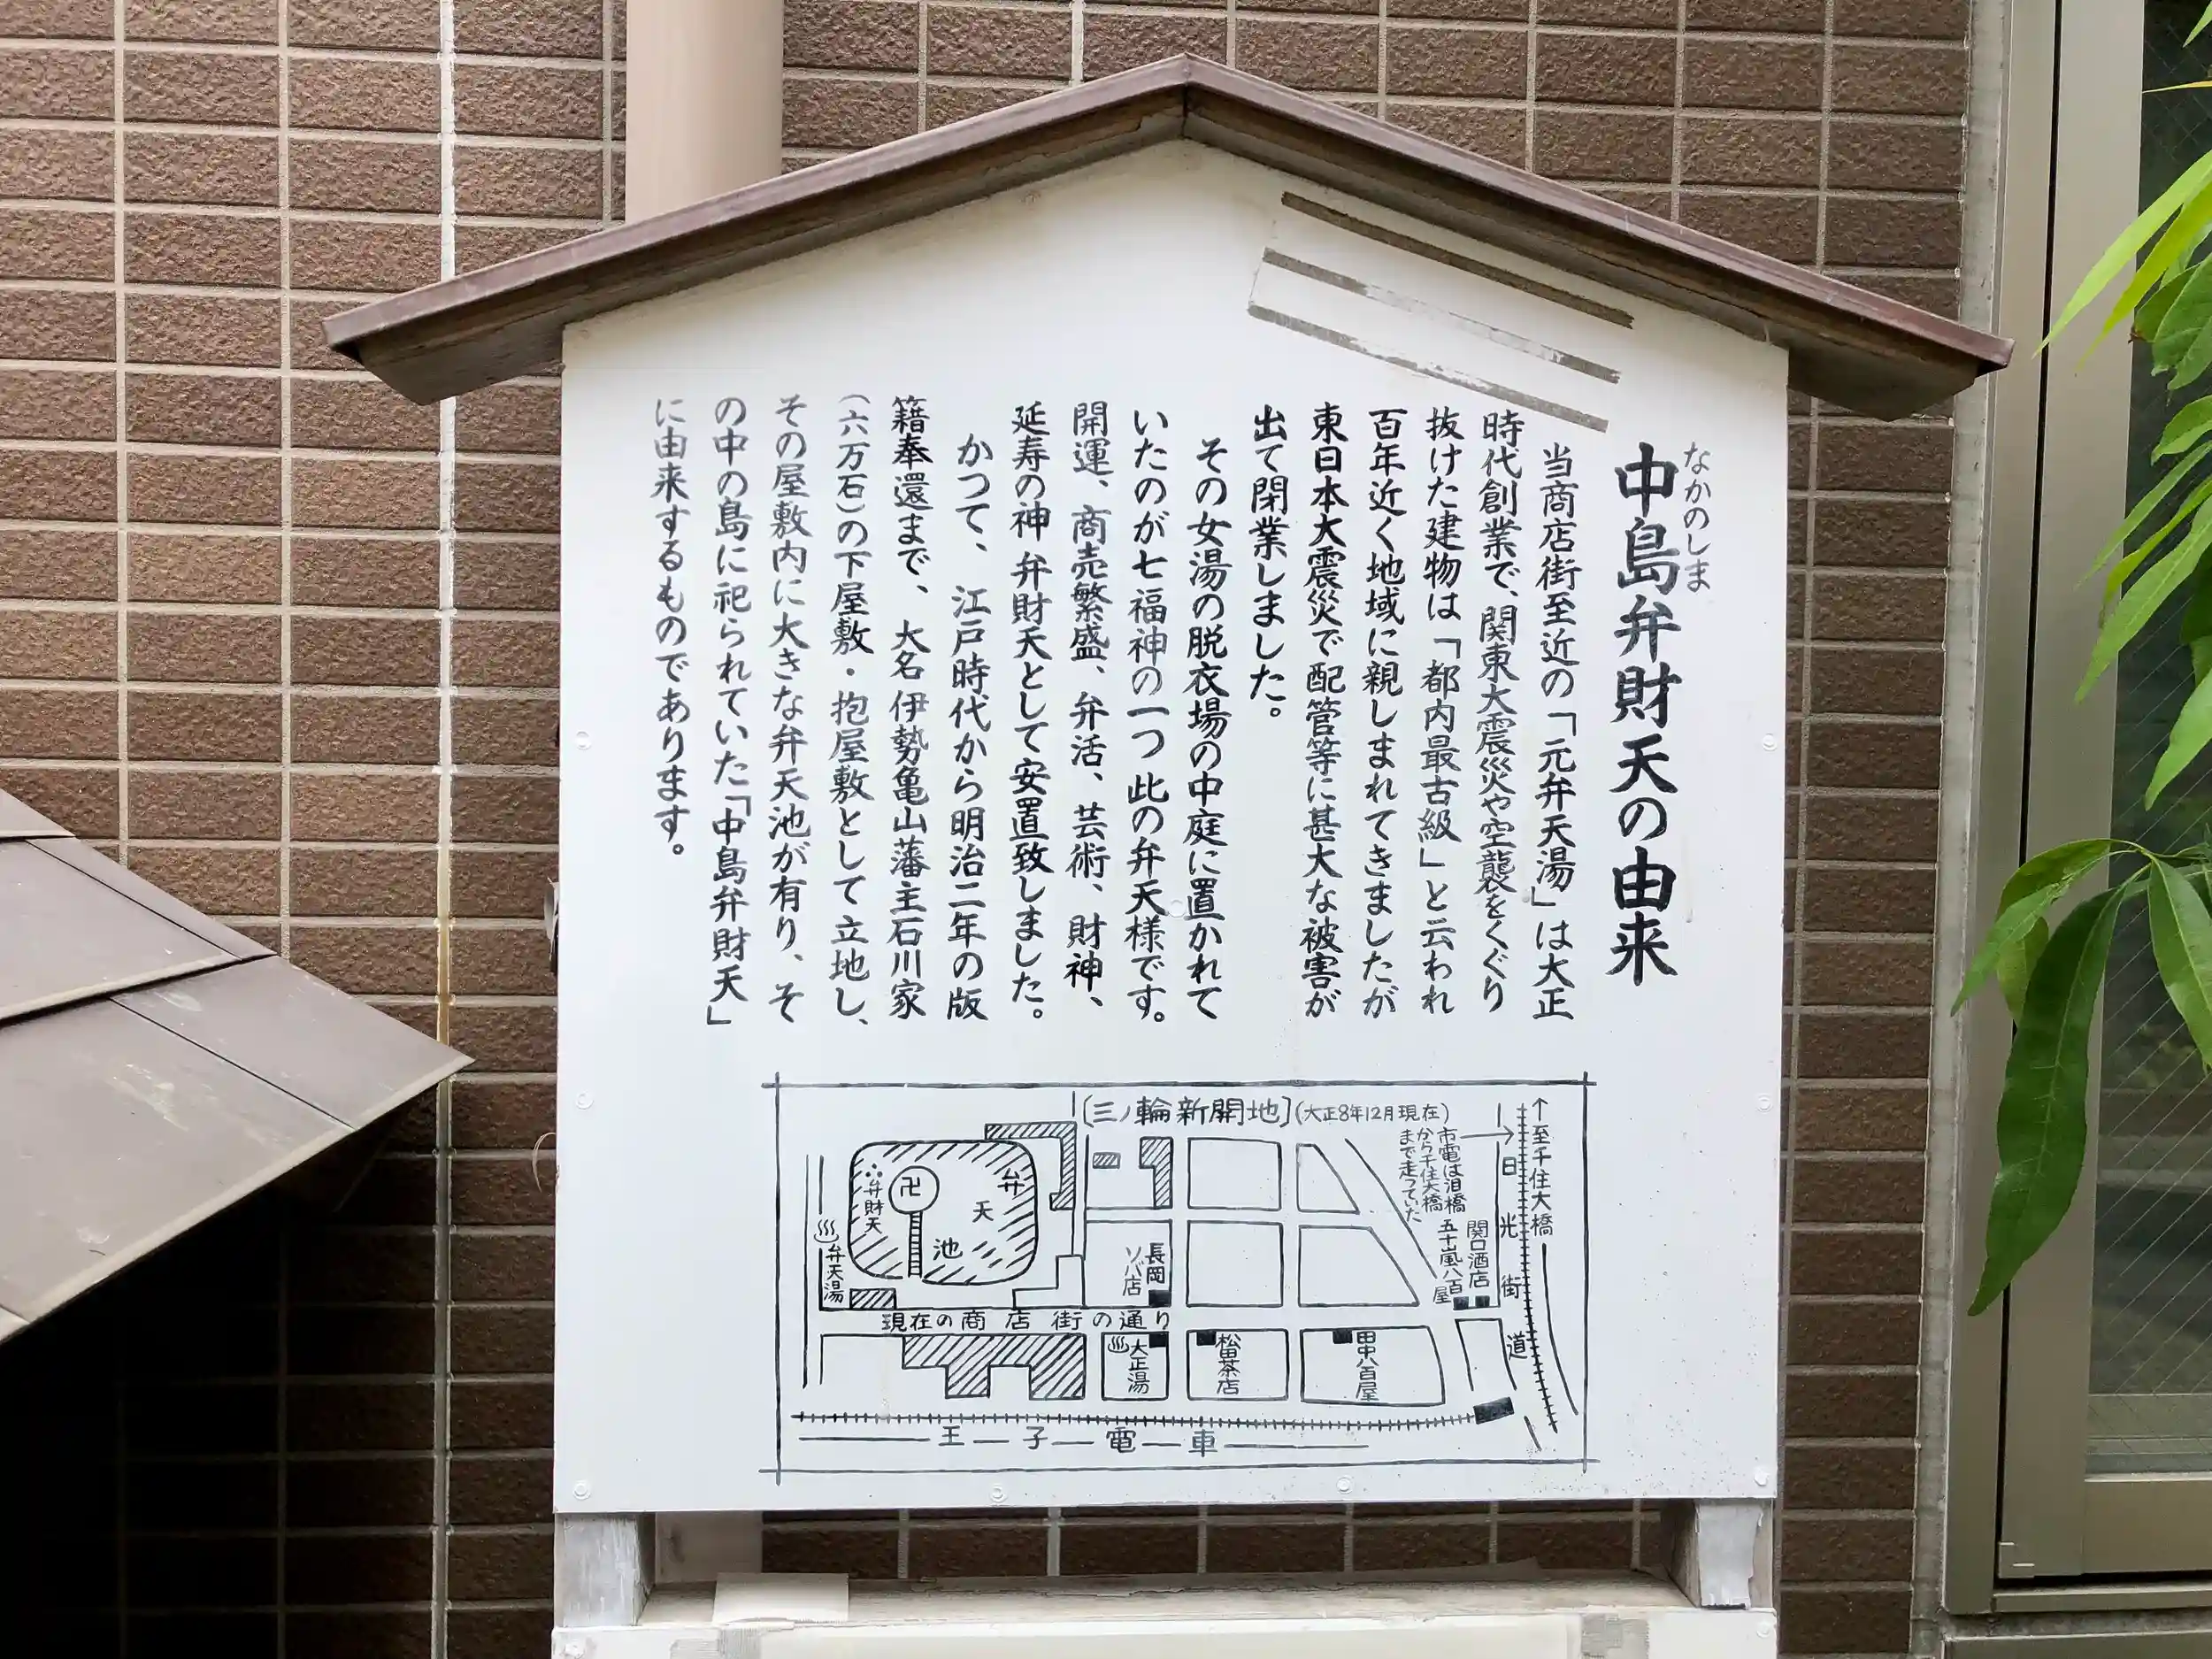 中島弁財天の由来
なかのしま
当商店街至近の「元弁天湯」は大正
時代創業で、関東大震災や空襲をくぐり
抜けた建物は「都内最古級」と云われ
百年近く地域に親しまれてきましたが
東日本大震災で配管等に甚大な被害が
出て閉業しました。
その女湯の脱衣場の中庭に置かれて
いたのが七福神の一つ此の弁天様です。
開運、商売繁盛、弁活、芸術、財神、
延寿の神 弁財天として安置致しました。
かつて、江戸時代から明治二年の版
籍奉還まで、大名 伊勢亀山藩主石川家
(六万石)の下屋敷・抱屋敷として立地し、
その屋敷内に大きな弁天池が有り、そ
の中の島に祀られていた「中島弁財天」
に由来するものであります。
[三ノ輪新開地](大正8年12月現在)
↑至千住大橋
市電は泪橋
から千住大橋
まで走っていた
日光街道
関口酒店
五十嵐八百屋
弁天池
卍
弁財天
弁天湯
長岡
ソバ店
現在の商店街の通り
大正湯
松田茶店
田中八百屋
王子電車